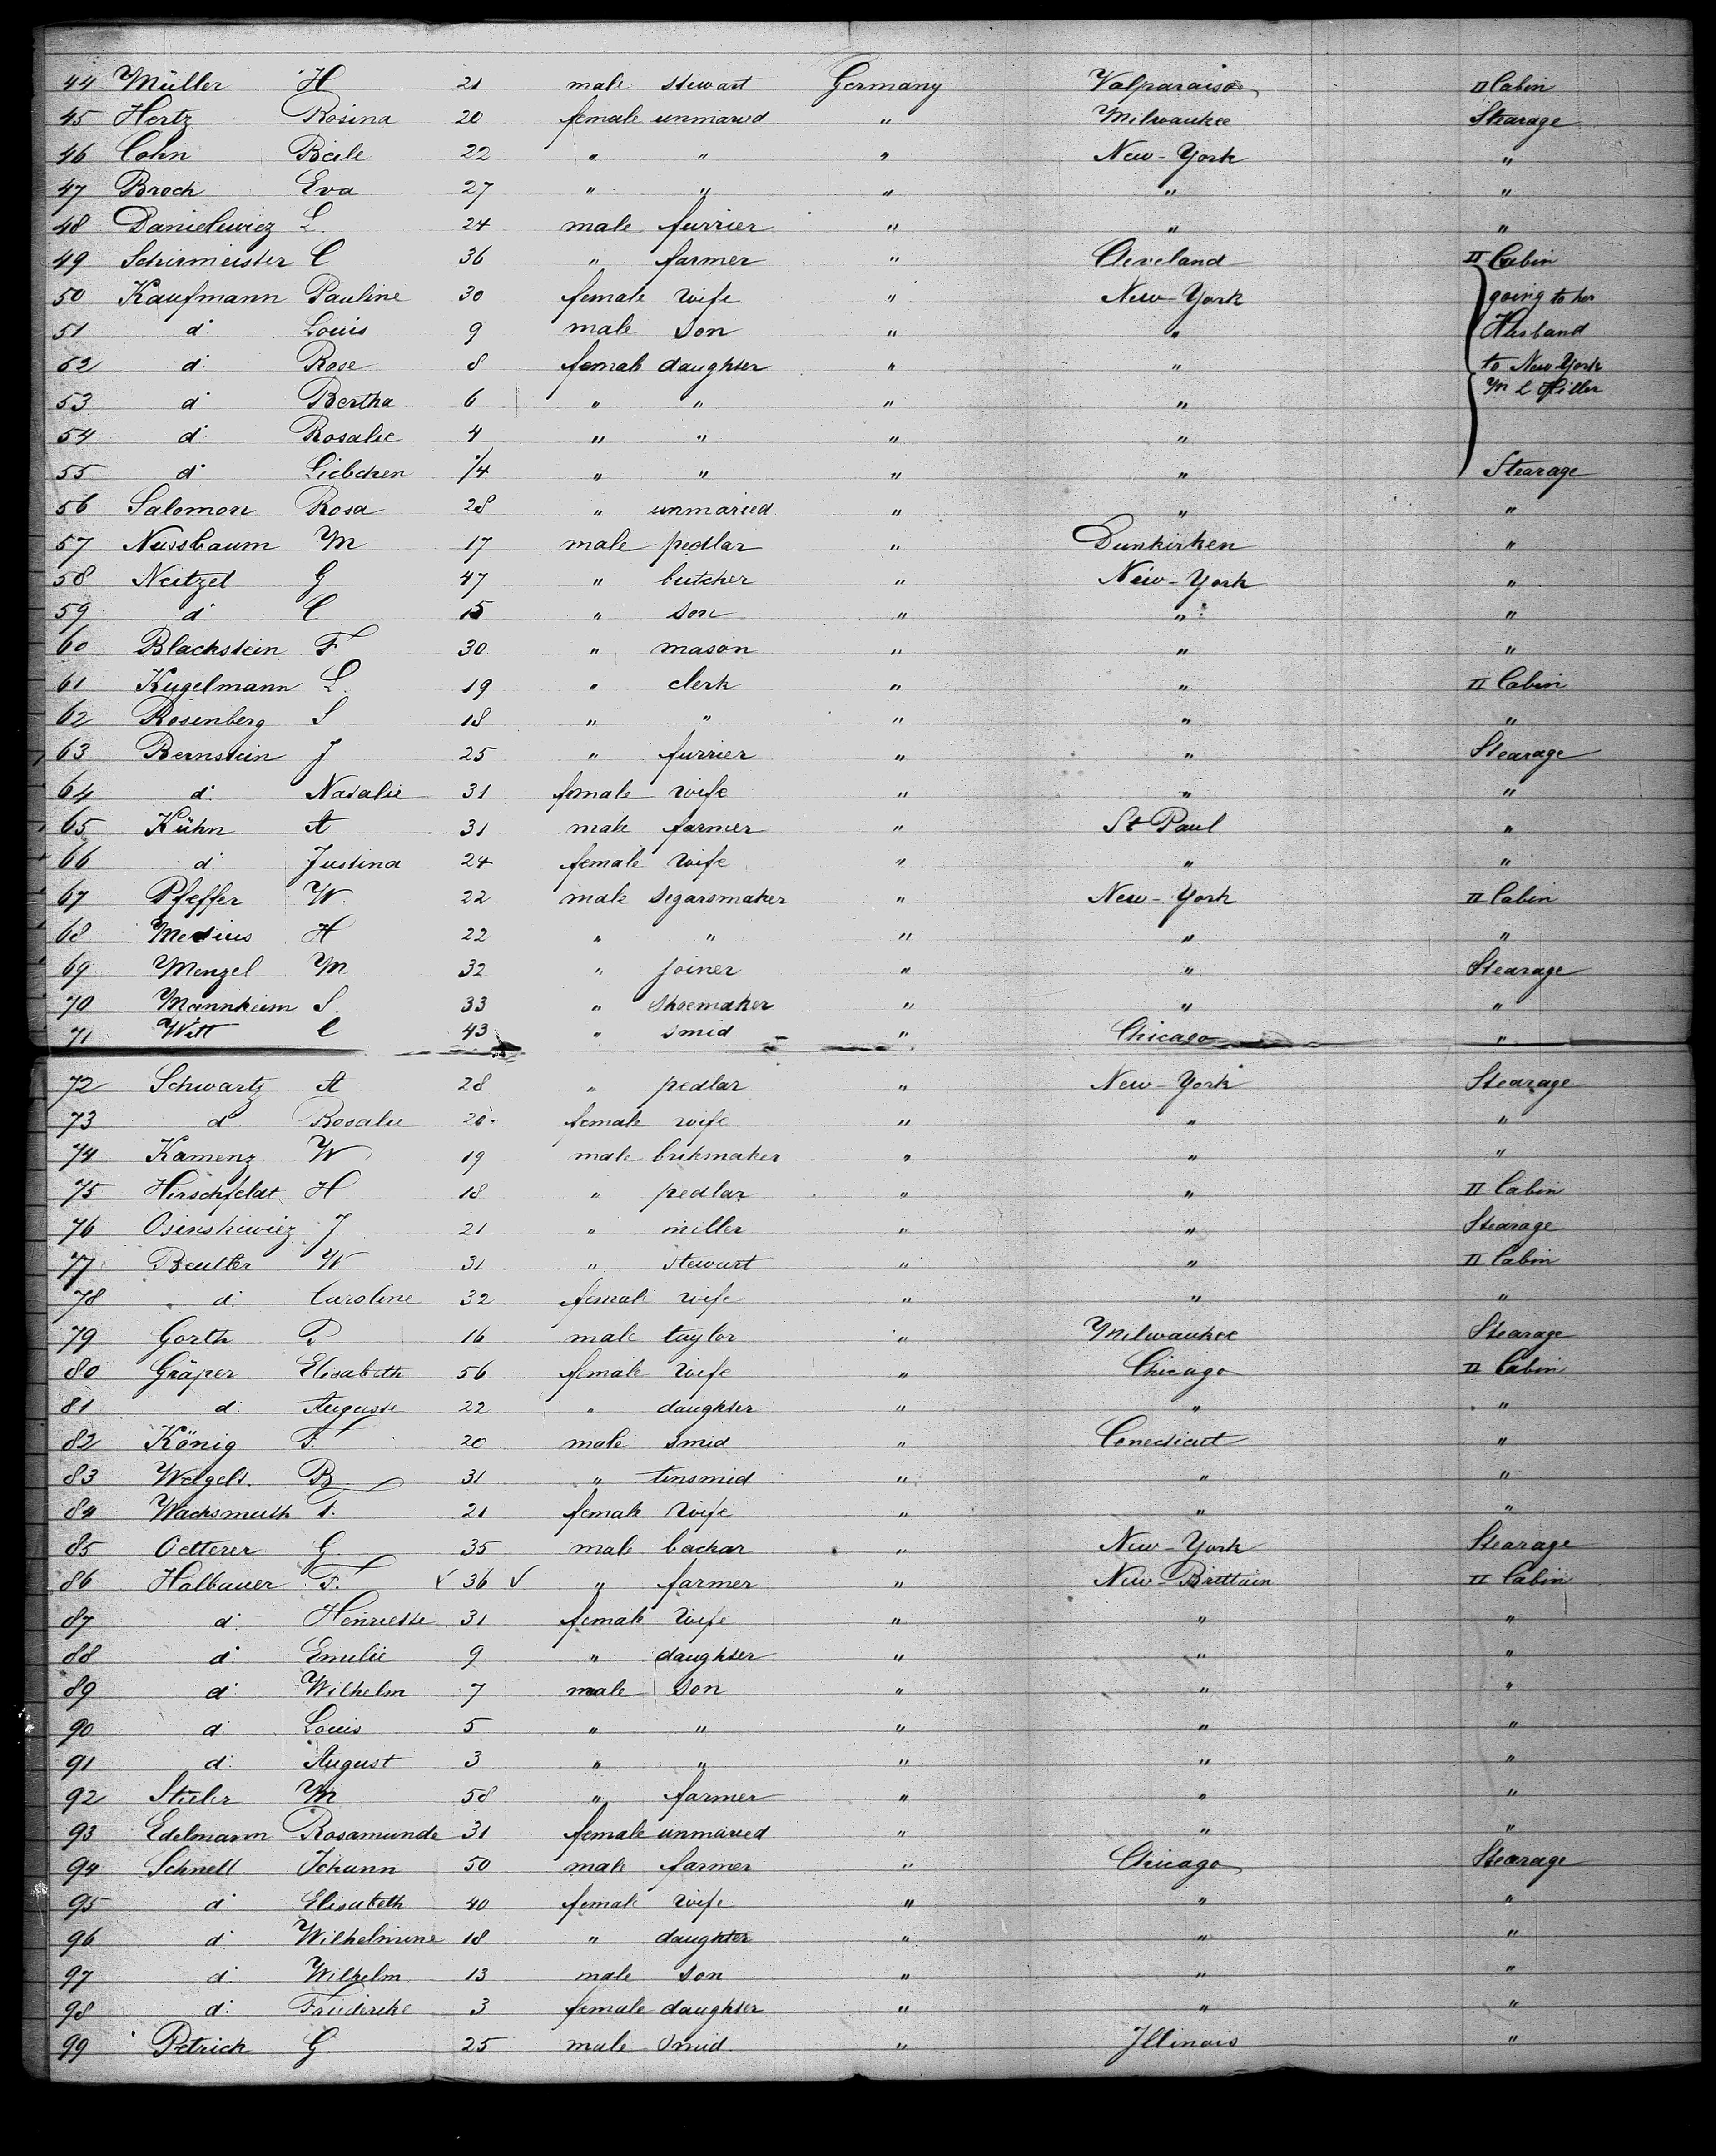 44 Müller H 21 male stewart Germany Valparaiso II Cabin
45 Hertz Rosina 20 female unmaried " Milwaukee Stearage
46 Cohn Beile 22 " " " New-York "
47 Broch Eva 27 " " " " "
48 Danielewicz L. 24 male furrier " " "
49 Schirmeister C 36 " farmer " Cleveland II Cabin
50 Kaufmann Pauline 30 female wife " New-York going to her
51 d: Louis 9 male son " " Husband
52 d: Rose 8 female daughter " " to New York
53 d: Bertha 6 " " " " M L Hiller
54 d: Rosalie 4 " " " "
55 d: Liebchen 1/4 " " " " Stearage
56 Salomon Rosa 28 " unmaried " " "
57 Nussbaum M 17 male pedlar " Dunkirken "
58 Neitzel G 47 " butcher " New-York "
59 d: C 15 " son " " "
60 Blachstein F 30 " mason " " "
61 Kugelmann L. 19 " clerk " " II Cabin
62 Rosenberg S 18 " " " " "
63 Bernstein J 25 " furrier " " Stearage
64 d: Natalie 31 female wife " " "
65 Kühn A 31 male farmer " St Paul "
66 d: Justina 24 female wife " " "
67 Pfeffer W. 22 male segarsmaker " New-York II Cabin
68 H 22 " " " " "
69 Menzel M 32 " joiner " " Stearage
70 Mannheim S. 33 " shoemaker " " "
71 Witt C 43 " smid " Chicago "
72 Schwartz A 28 " pedlar " New-York Stearage
73 d: Rosalie 20 female wife " " "
74 Kamenz W 19 male brikmaker " " "
75 Hirschfeldt H 18 " pedlar " " II Cabin
76 Osinskiwicz J 21 " miller " " Stearage
77 Beutler W 31 " stewart " " II Cabin
78 d: Caroline 32 female wife " " "
79 Gorth 16 male taylor " Milwaukee Stearage
80 Gräper Elisabeth 56 female wife " Chicago II Cabin
81 d: Auguste 22 " daughter " " "
82 König F. 20 male smid " Conecticut "
83 Weigelt B 31 " tinsmid " " "
84 Wachsmuth F. 21 female wife " " "
85 Oetterer G 35 male backar " New-York Stearage
86 Halbauer F. 36 " farmer " New-Brittain II Cabin
87 d: Henriette 31 female wife " " "
88 d: Emilie 9 " daughter " " "
89 d: Wilhelm 7 male son " " "
90 d: Louis 5 " " " " "
91 d: August 3 " " " " "
92 Stieler M 58 " farmer " " "
93 Edelmann Rosamunde 31 female unmaried " " "
94 Schnell Johann 50 male farmer " Chicago Stearage
95 d: Elisabeth 40 female wife " " "
96 d: Wilhelmine 18 " daughter " " "
97 d: Wilhelm 13 male son " " "
98 d: Friedericke 3 female daughter " " "
99 Petrick G. 25 male smid " Illinois "